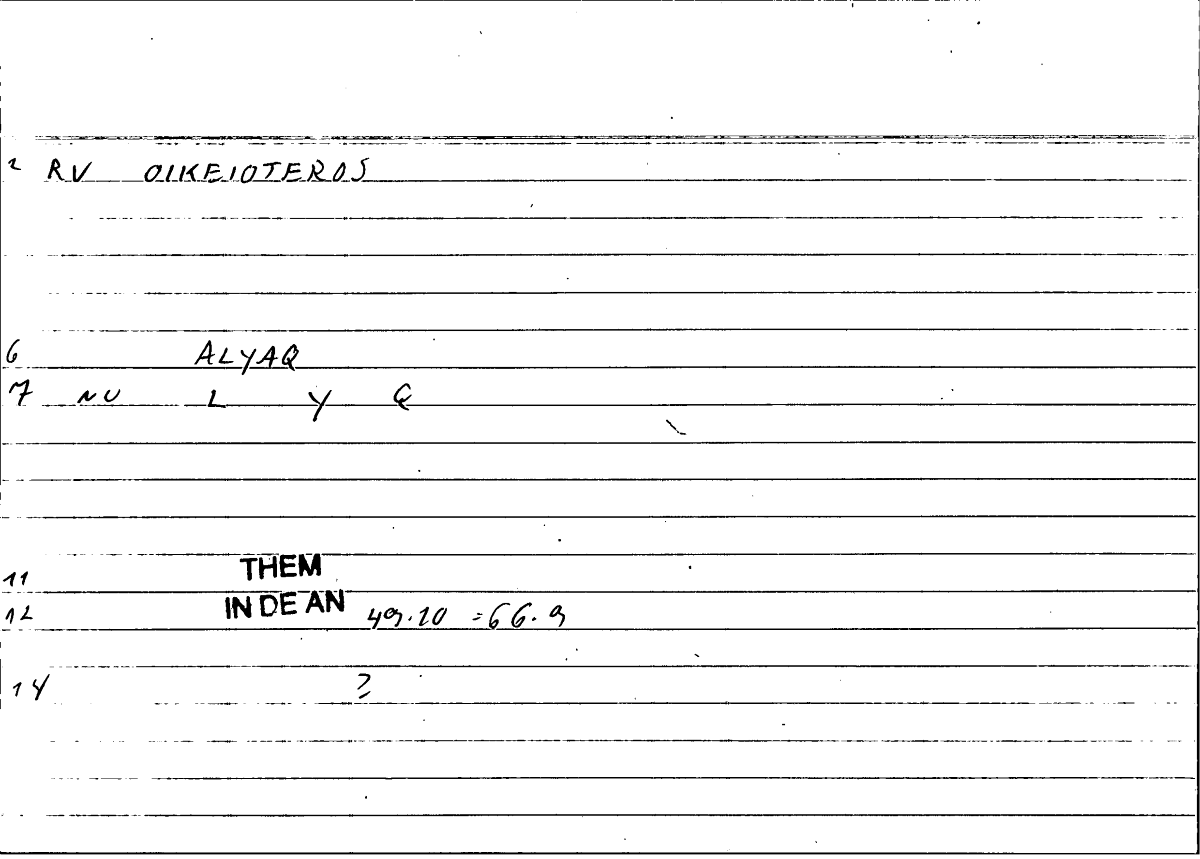 2 RV OIKEIOTEROS
6 ALYAQ
7 NU L Y Q
11 THEM
12 IN DE AN 49.10 = 66.9
14 ?